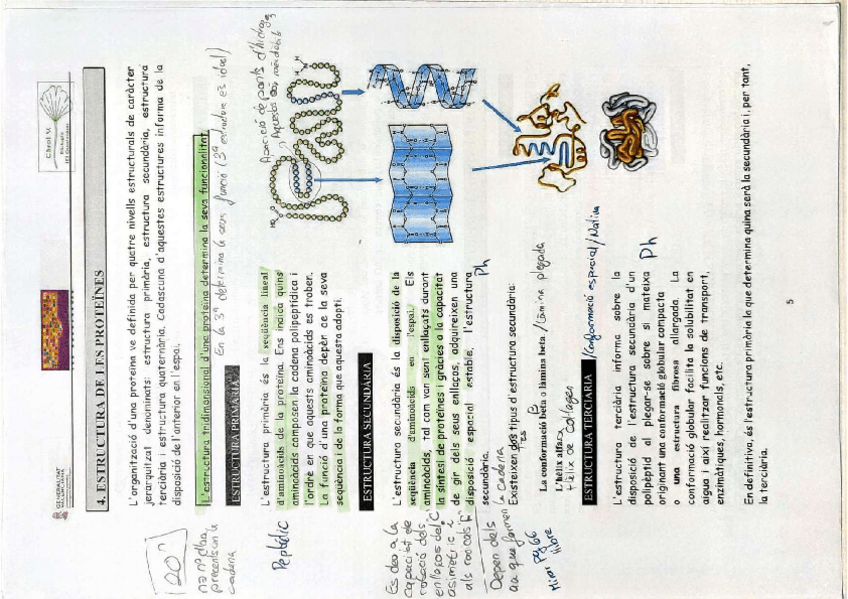 GENERALITAT
VALENCIANA
4. ESTRUCTURA DE LES PROTEÏNES
L'organització d'una proteïna ve definida per quatre nivells estructurals de caràcter
jerarquitzat denominats: estructura primària, estructura secundària, estructura
terciària i estructura quaternària. Cadascuna d'aquestes estructures informa de la
disposició de l'anterior en l'espai.
L'estructura tridimensional d'una proteïna determina la seva funcionalitat
En la 3ª determina la seua funció (3ª estructura es ideal)
ESTRUCTURA PRIMÀRIA
L'estructura primària és la seqüència lineal
d'aminoàcids de la proteïna. Ens indica quins
aminoàcids composen la cadena polipeptídica i
l'ordre en que aquests aminoàcids es troben.
La funció d'una proteïna depèn de la seva
seqüència i de la forma que aquesta adopti.
Peptídic
Aparició de ponts d'hidrog
ESTRUCTURA SECUNDÀRIA
L'estructura secundària és la disposició de la
seqüència d'aminoàcids en l'espai. Els
aminoàcids, tal com van sent enllaçats durant
la síntesi de proteïnes i gràcies a la capacitat
de gir dels seus enllaços, adquireixen una
disposició espacial estable, l'estructura
secundària.
Ph
Es deu a la
capacitat de
rotació dels
enllaços del C
asimetric i
als radicals
Depen dels
aa que formen
la cadena
Existeixen dos tipus d'estructura secundària:
tres
La conformació beta o làmina beta / Làmina plegada
L'hèlix alfa
Hèlix de Colàgen
Mirar pg 66
llibre
ESTRUCTURA TERCIARIA / Conformació espacial / Nativa
L'estructura terciària informa sobre la
disposició de l'estructura secundària d'un
polipèptid al plegar-se sobre si mateixa
originant una conformació globular compacta
o una estructura fibrosa allargada. La
conformació globular facilita la solubilitat en
aigua i així realitzar funcions de transport,
enzimàtiques, hormonals, etc.
Ph
En definitiva, és l'estructura primària la que determina quina serà la secundària i, per tant,
la terciària.
5